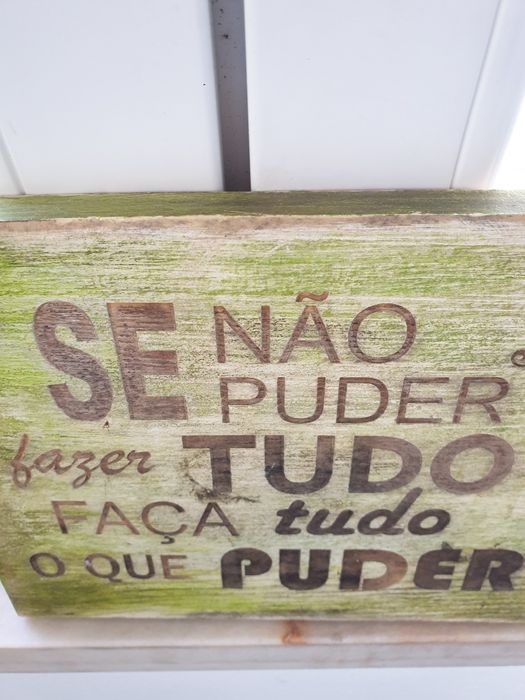 SE NÃO
PUDER
fazer TUDO
FAÇA tudo
O QUE PUDER